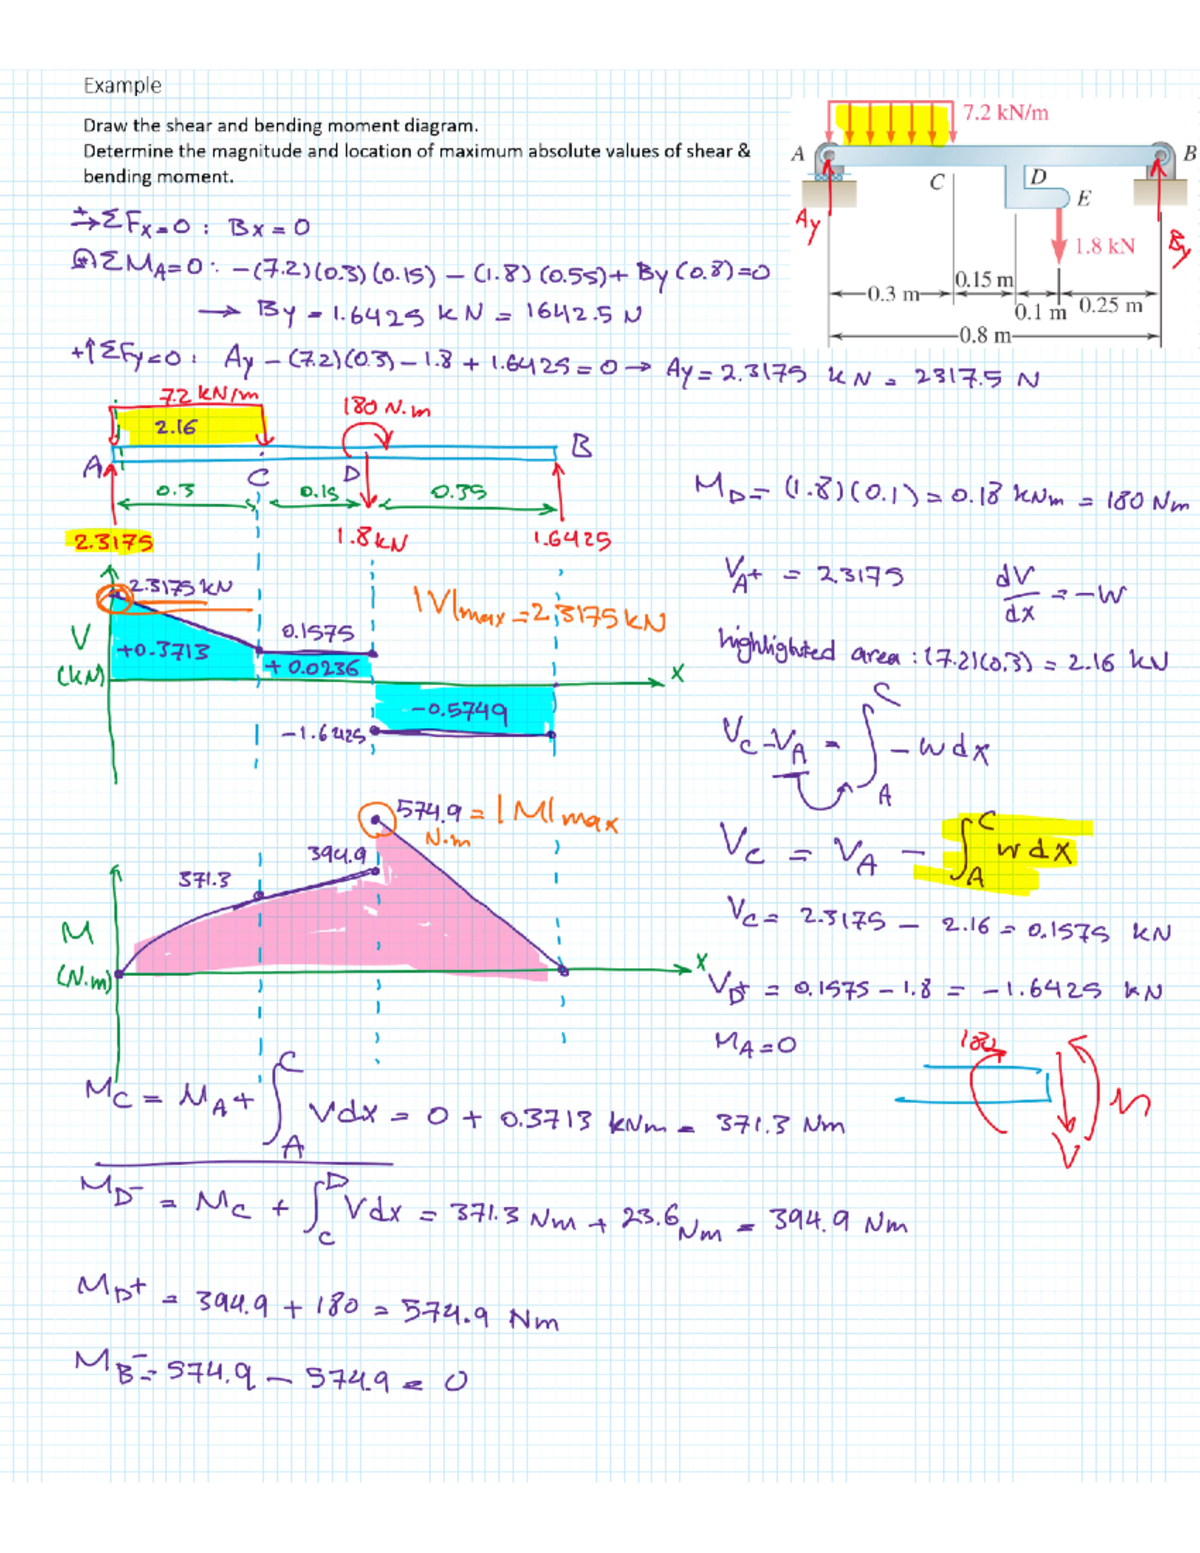 Example
Draw the shear and bending moment diagram.
Determine the magnitude and location of maximum absolute values of shear &
bending moment.
7.2 kN/m
A
B
C
D
E
Ay
By
1.8 kN
0.3 m
0.15 m
0.1 m
0.25 m
0.8 m
+→ ΣFx=0 : Bx = 0
ΣMA=0: -(7.2)(0.3)(0.15) - (1.8)(0.55) + By(0.8)=0
→ By = 1.6425 kN = 1642.5 N
+↑ΣFy=0: Ay - (7.2)(0.3) - 1.8 + 1.6425 = 0 → Ay = 2.3175 kN = 2317.5 N
7.2 kN/m
2.16
180 N.m
A
C
D
B
0.3
0.15
0.35
2.3175
1.8 kN
1.6425
MD = (1.8)(0.1) = 0.18 kNm = 180 Nm
VA+ = 2.3175
dV/dx = -W
highlighted area : (7.2)(0.3) = 2.16 kN
2.3175 kN
|V|max = 2.3175 kN
V
(kN)
+0.3713
0.1575
+0.0236
x
-0.5749
-1.6425
VC - VA = ∫AC -wdx
VC = VA - ∫AC wdx
VC = 2.3175 - 2.16 = 0.1575 kN
VD+ = 0.1575 - 1.8 = -1.6425 kN
574.9 = |M|max
N.m
394.9
371.3
M
(N.m)
x
MA=0
180
V
M
MC = MA + ∫AC Vdx = 0 + 0.3713 kNm = 371.3 Nm
MD- = MC + ∫CD Vdx = 371.3 Nm + 23.6 Nm = 394.9 Nm
MD+ = 394.9 + 180 = 574.9 Nm
MB- = 574.9 - 574.9 = 0